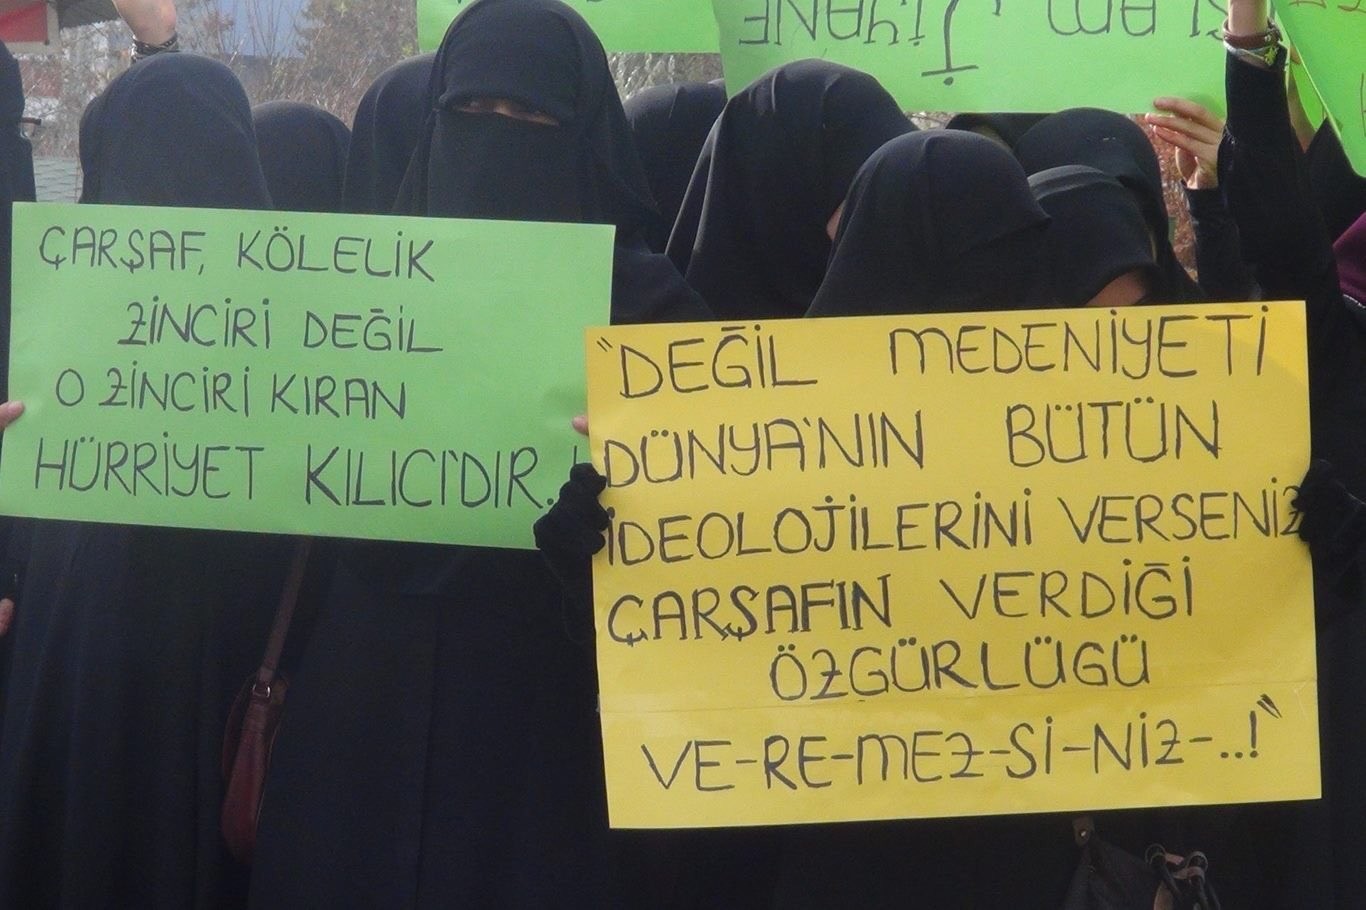 ÇARŞAF, KÖLELİK
ZİNCİRİ DEĞİL
O ZİNCİRİ KIRAN
HÜRRİYET KILICI'DIR..!
"DEĞİL MEDENİYETİ
DÜNYA'NIN BÜTÜN
İDEOLOJİLERİNİ VERSENİZ
ÇARŞAF'IN VERDİĞİ
ÖZGÜRLÜĞÜ
VE-RE-MEZ-Sİ-NİZ-..!"